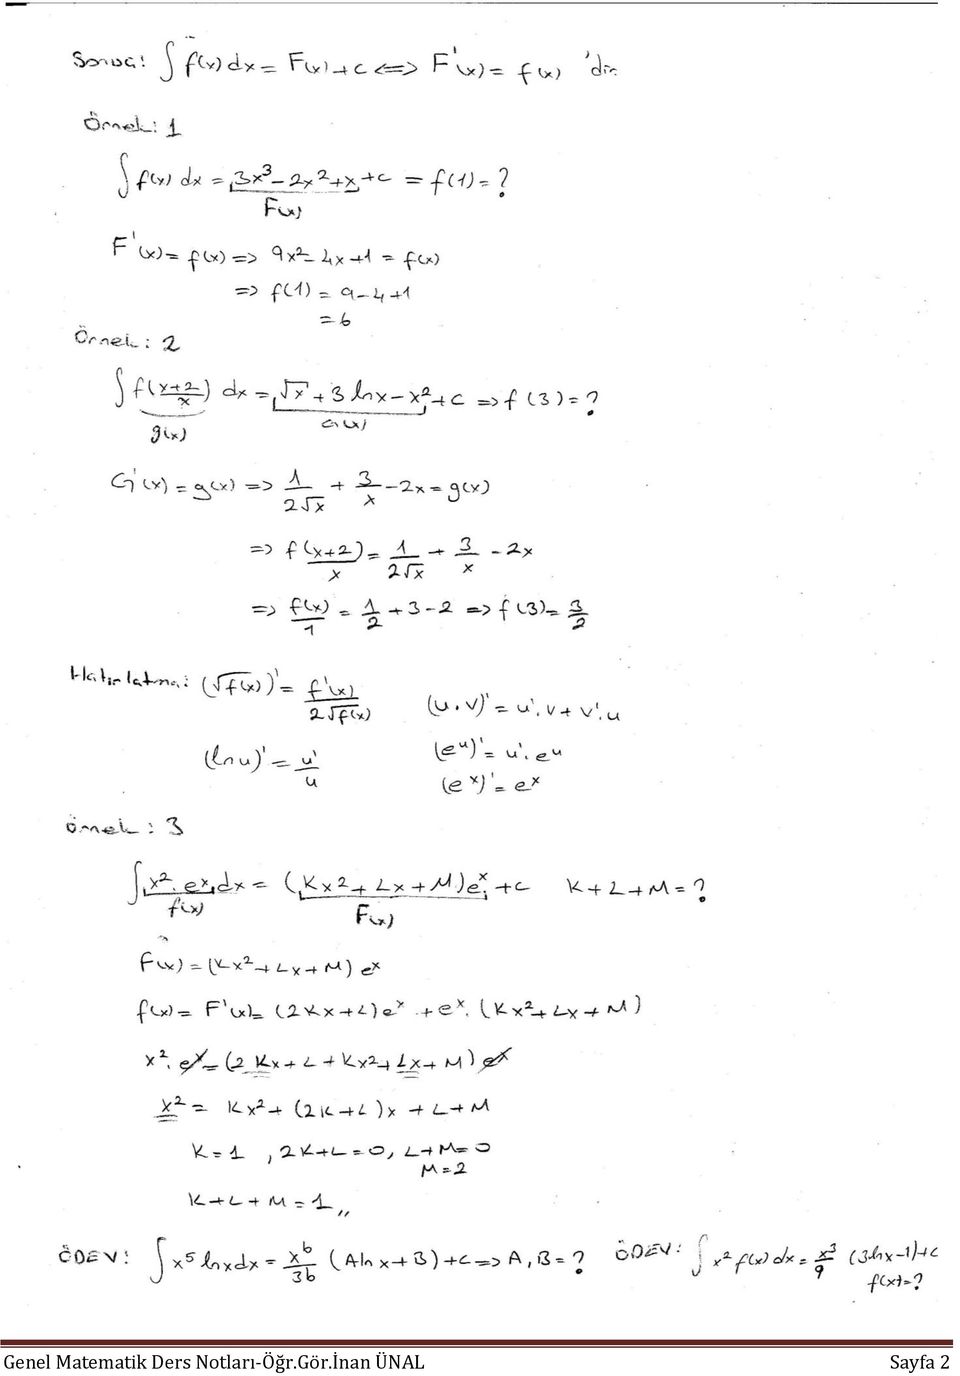 Sonuç: ∫ f(x) dx = F(x) + c <=> F'(x) = f(x) 'dir
Örnek: 1
∫ f(x) dx = 3x³ - 2x² + x + c = f(1) = ?
F(x)
F'(x) = f(x) => 9x² - 4x + 1 = f(x)
=> f(1) = 9 - 4 + 1
= 6
Örnek: 2
∫ f((x+2)/x) dx = √x + 3 lnx - x² + c => f(3) = ?
g(x) G(x)
G'(x) = g(x) => 1/(2√x) + 3/x - 2x = g(x)
=> f((x+2)/x) = 1/(2√x) + 3/x - 2x
=> f(x)/1 = 1/2 + 3 - 2 => f(3) = 3/2
Hatırlatma: (√f(x))' = f'(x)/(2√f(x)) (u.v)' = u'.v + v'.u
(ln u)' = u'/u (e^u)' = u'.e^u
(e^x)' = e^x
Örnek: 3
∫ x².e^x dx = (Kx² + Lx + M)e^x + c K + L + M = ?
f(x) F(x)
F(x) = (Kx² + Lx + M) e^x
f(x) = F'(x) = (2Kx + L)e^x + e^x.(Kx² + Lx + M)
x².e^x = (2Kx + L + Kx² + Lx + M) e^x
x² = Kx² + (2K + L)x + L + M
K = 1 , 2K + L = 0, L + M = 0
M = 2
K + L + M = 1,,
ÖDEV: ∫ x⁵ lnx dx = x⁶/36 (A ln x + B) + c => A, B = ? ÖDEV: ∫ x² f(x) dx = x³/9 (3lnx - 1) + c
f(x) = ?
Genel Matematik Ders Notları-Öğr.Gör.İnan ÜNAL Sayfa 2